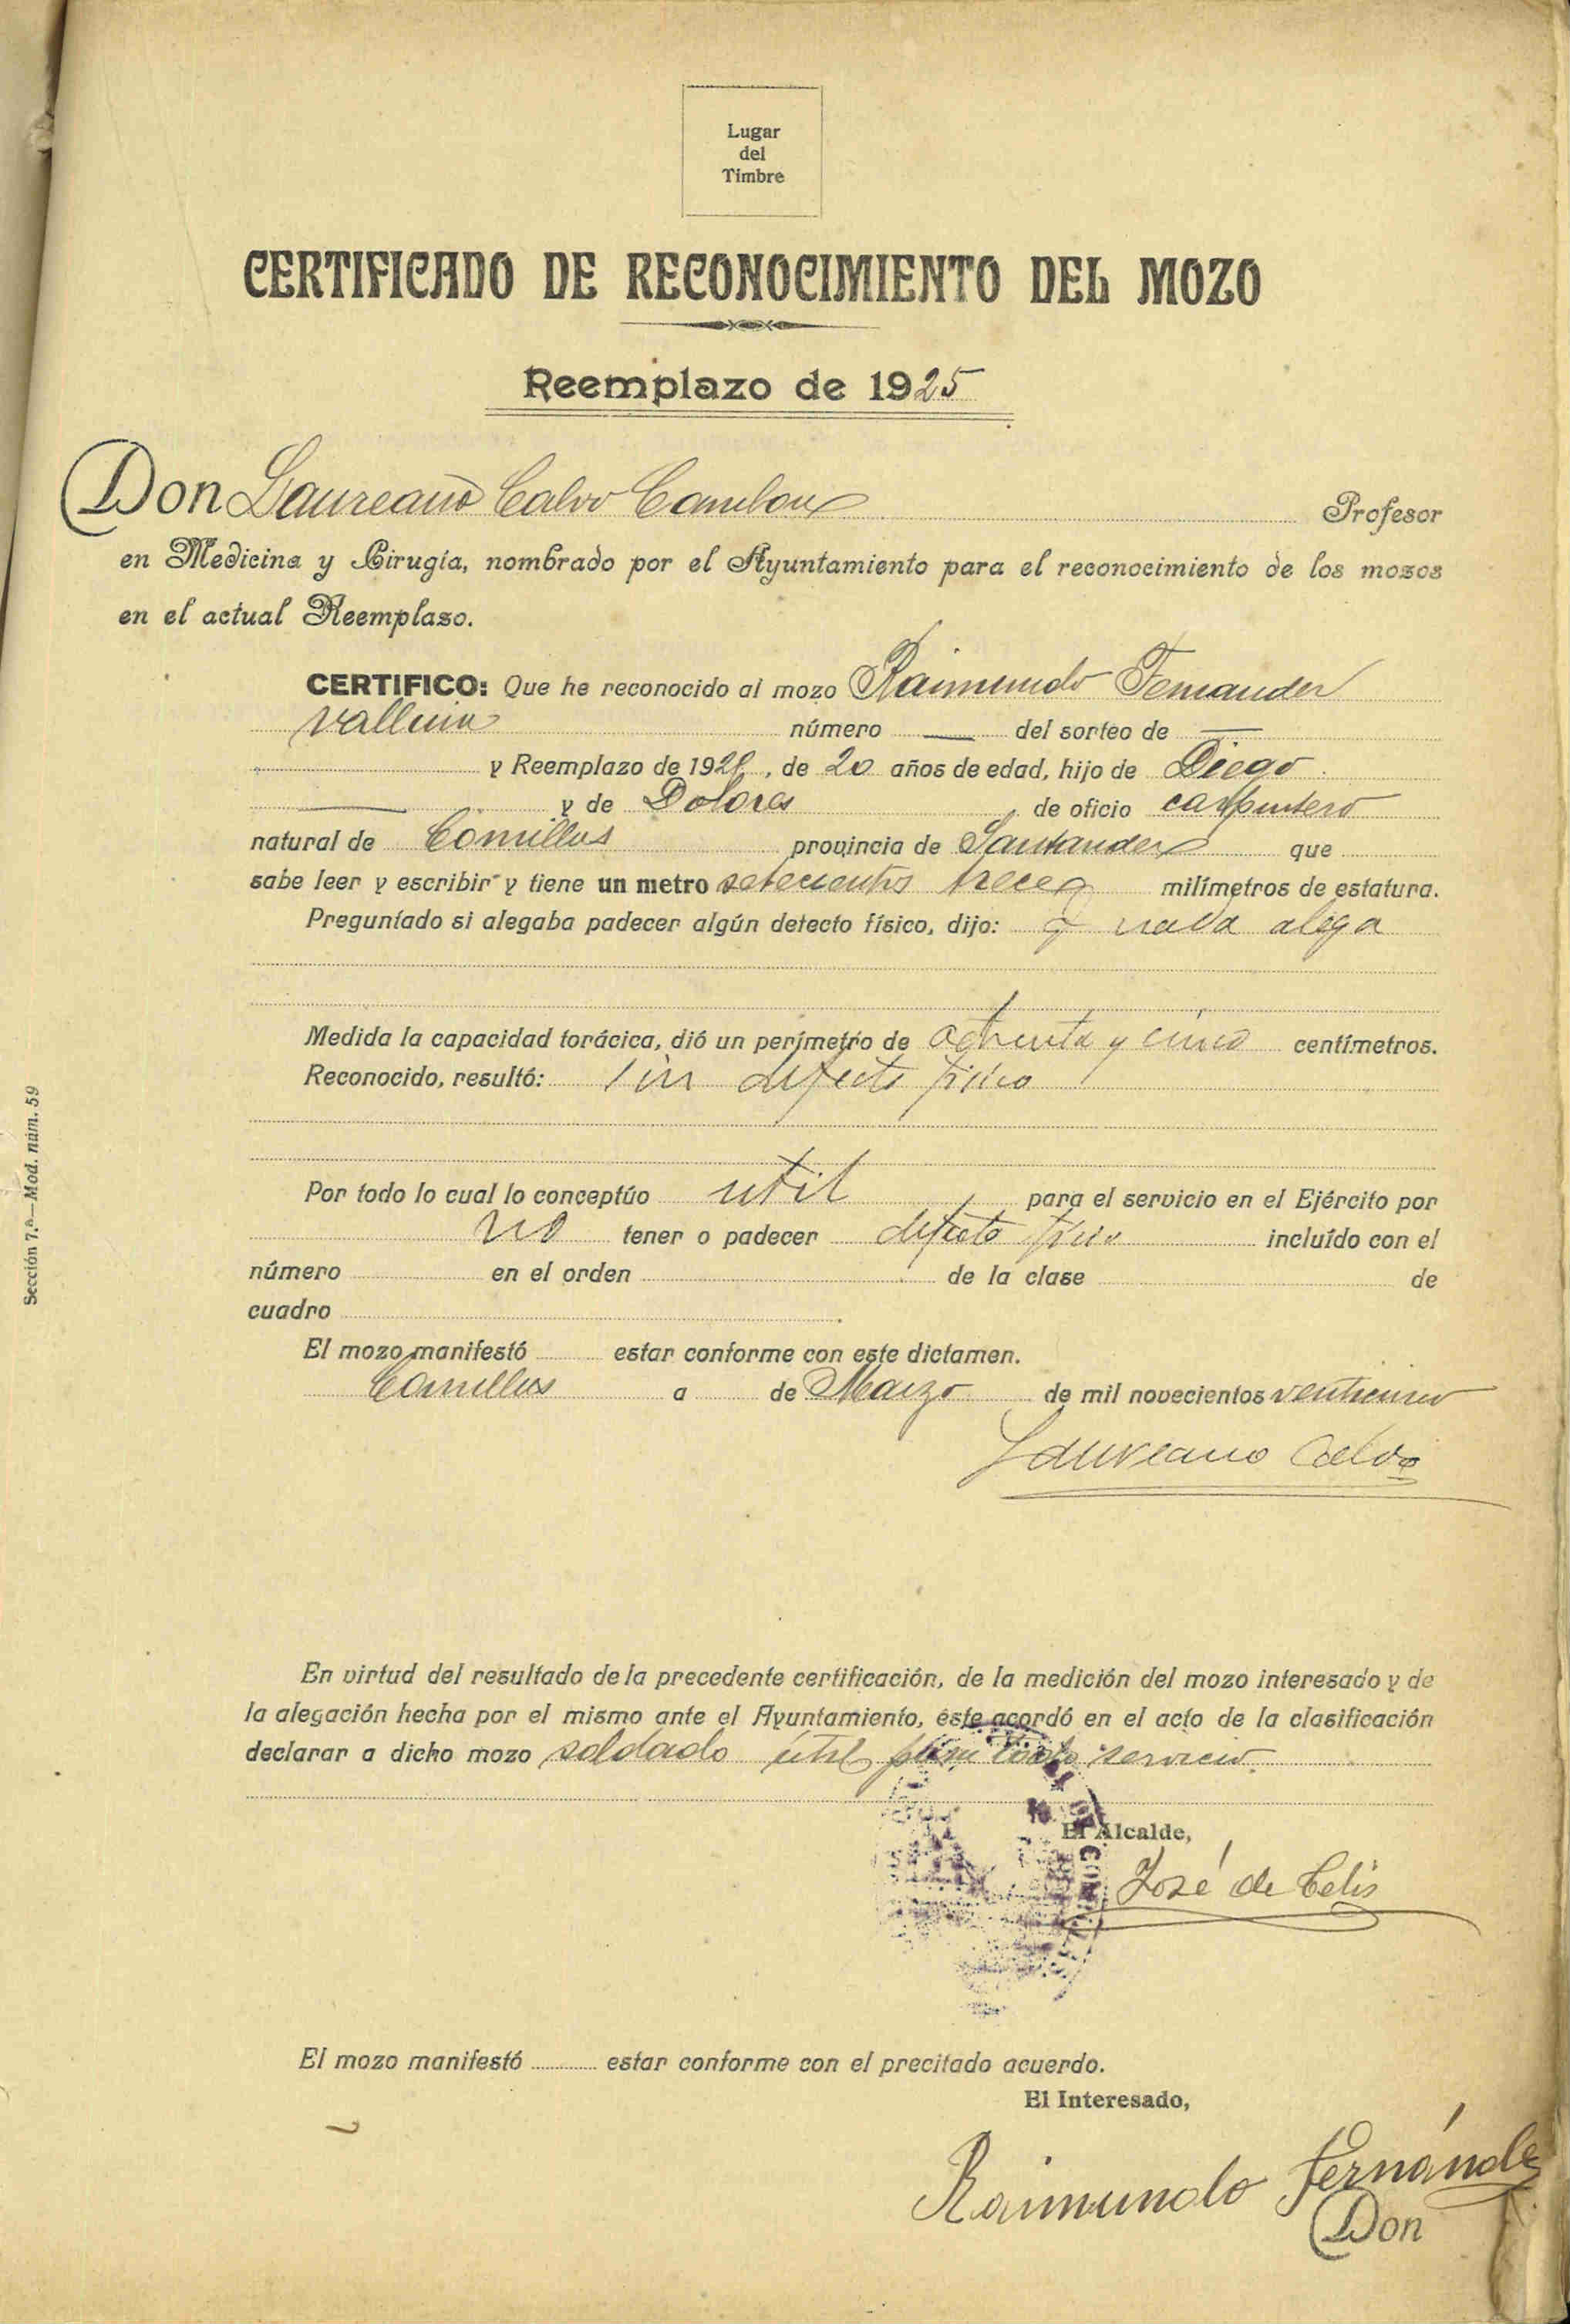 Lugar
del
Timbre
CERTIFICADO DE RECONOCIMIENTO DEL MOZO
Reemplazo de 1925
Don Laureano Calvo Profesor
en Medicina y Cirugía, nombrado por el Ayuntamiento para el reconocimiento de los mozos
en el actual Reemplazo.
CERTIFICO: Que he reconocido al mozo Raimundo Fernandez
Vallina número — del sorteo de —
y Reemplazo de 192 , de 20 años de edad, hijo de Diego
y de Dolores de oficio carpintero
natural de Comillas provincia de Santander que
sabe leer y escribir y tiene un metro setecientos trece milímetros de estatura.
Preguntado si alegaba padecer algún defecto físico, dijo: q nada alega
Medida la capacidad torácica, dió un perímetro de ochenta y cinco centímetros.
Reconocido, resultó: sin defecto físico
Por todo lo cual lo conceptúo util para el servicio en el Ejército por
no tener o padecer defecto físico incluído con el
número en el orden de la clase de
cuadro
El mozo manifestó estar conforme con este dictamen.
Comillas a de Marzo de mil novecientos venticinco
Laureano Calvo
En virtud del resultado de la precedente certificación, de la medición del mozo interesado y de
la alegación hecha por el mismo ante el Ayuntamiento, éste acordó en el acto de la clasificación
declarar a dicho mozo soldado útil para todo servicio.
El Alcalde,
José de Celis
El mozo manifestó estar conforme con el precitado acuerdo.
El Interesado,
Raimundo Fernández
Don
Sección 7.ª—Mod. núm. 59